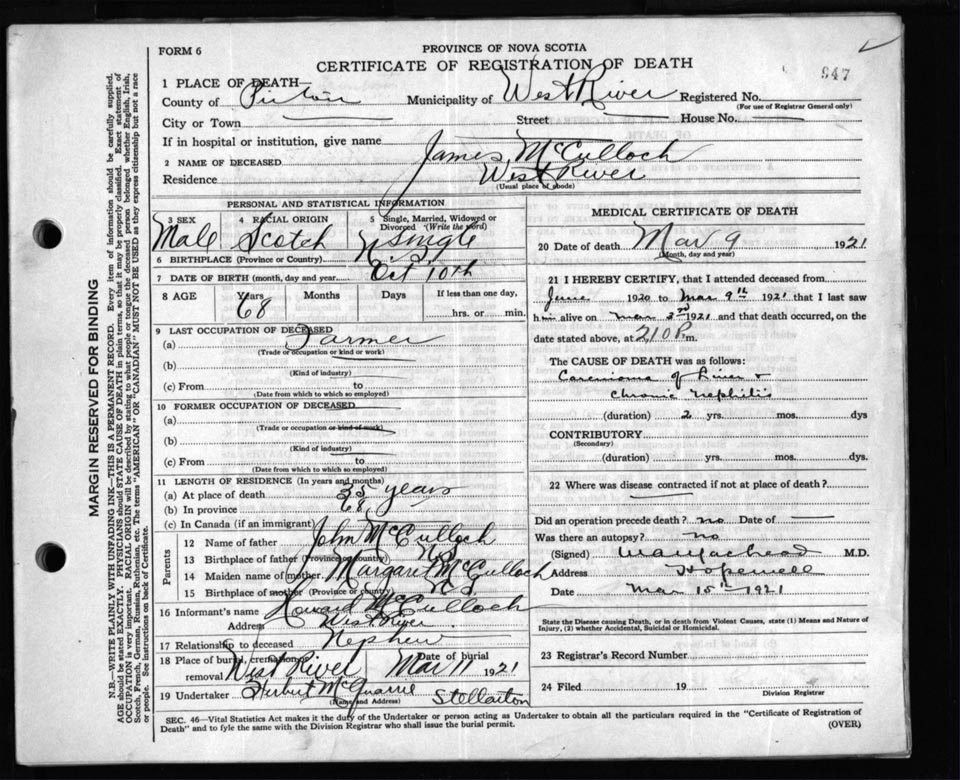 FORM 6
PROVINCE OF NOVA SCOTIA
CERTIFICATE OF REGISTRATION OF DEATH
947
1 PLACE OF DEATH—
County of Pictou Municipality of West River Registered No.
(For use of Registrar General only)
City or Town Street House No.
If in hospital or institution, give name
2 NAME OF DECEASED James McCulloch
Residence West River
(Usual place of abode)
PERSONAL AND STATISTICAL INFORMATION
3 SEX Male
4 RACIAL ORIGIN Scotch
5 Single, Married, Widowed or Divorced (Write the word) Single
6 BIRTHPLACE (Province or Country) N.S.
7 DATE OF BIRTH (month, day and year) Oct 10th
8 AGE Years 68 Months Days If less than one day, hrs. or min.
9 LAST OCCUPATION OF DECEASED
(a) Farmer
(Trade or occupation or kind or work)
(b)
(Kind of industry)
(c) From to
(Date from which to which so employed)
10 FORMER OCCUPATION OF DECEASED
(a)
(Trade or occupation or kind of work)
(b)
(Kind of industry)
(c) From to
(Date from which to which so employed)
11 LENGTH OF RESIDENCE (In years and months)
(a) At place of death 35 years
(b) In province 68
(c) In Canada (if an immigrant)
Parents
12 Name of father John McCulloch
13 Birthplace of father (Province or country) N.S.
14 Maiden name of mother Margaret McCulloch
15 Birthplace of mother (Province or country) N.S.
16 Informant's name Howard McCulloch
Address West River
17 Relationship to deceased Nephew
18 Place of burial, cremation or removal West River Date of burial Mar 11 1921
19 Undertaker Herbert McQuarrie Stellarton
(Name and Address)
MEDICAL CERTIFICATE OF DEATH
20 Date of death Mar 9 1921
(Month, day and year)
21 I HEREBY CERTIFY, that I attended deceased from
June 1920 to Mar 9th 1921 that I last saw
him alive on Mar 3rd 1921 and that death occurred, on
date stated above, at 2.10 P.m.
The CAUSE OF DEATH was as follows:
Carcinoma of Liver &
Chronic Nephritis
(duration) 2 yrs. mos. dys
CONTRIBUTORY
(Secondary)
(duration) yrs. mos. dys.
22 Where was disease contracted if not at place of death?
Did an operation precede death? no Date of
Was there an autopsy? no
(Signed) M.D.
Address Hopewell
Date Mar 15th 1921
State the Disease causing Death, or in death from Violent Causes, state (1) Means and Nature of
Injury, (2) whether Accidental, Suicidal or Homicidal.
23 Registrar's Record Number
24 Filed 19
Division Registrar
SEC. 46—Vital Statistics Act makes it the duty of the Undertaker or person acting as Undertaker to obtain all the particulars required in the "Certificate of Registration of
Death" and to fyle the same with the Division Registrar who shall issue the burial permit.
(OVER)
MARGIN RESERVED FOR BINDING
N.B.—WRITE PLAINLY WITH UNFADING INK—THIS IS A PERMANENT RECORD. Every item of information should be carefully supplied.
AGE should be stated EXACTLY. PHYSICIANS should STATE CAUSE OF DEATH in plain terms, so that it may be properly classified. Exact statement of
OCCUPATION is very important. RACIAL ORIGIN will be described by stating to what people or tongue the deceased person belonged whether English, Irish,
Scotch, French, German, Russian, Ruthenian, etc. The terms "AMERICAN" OR "CANADIAN" MUST NOT BE USED as they express citizenship but not a race
or people. See instructions on back of Certificate.